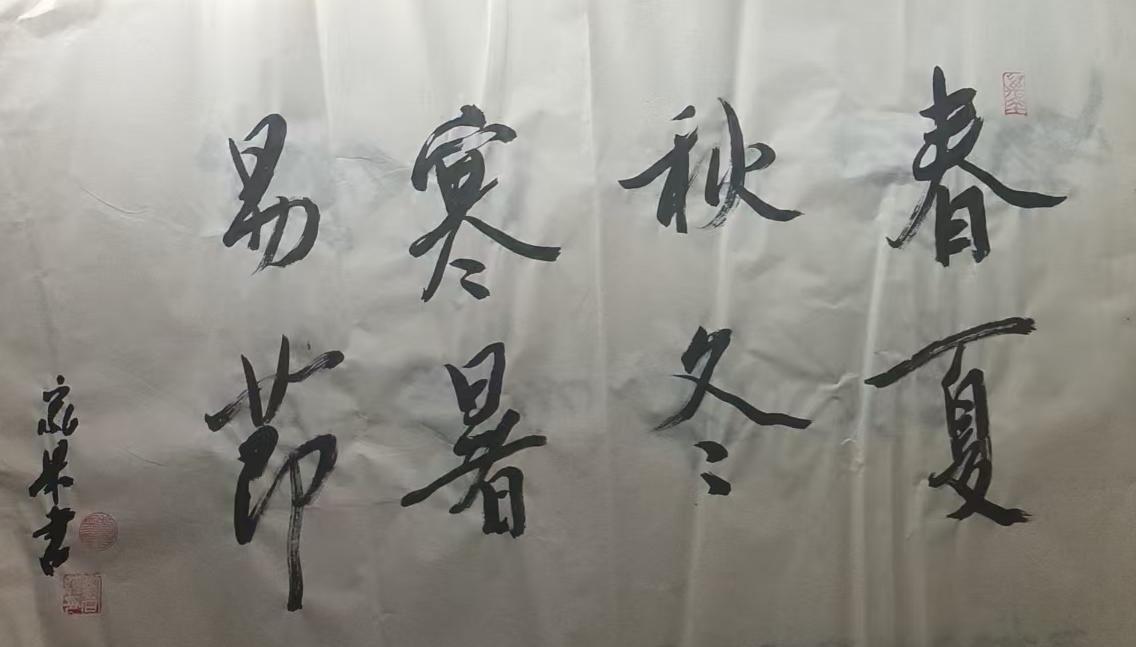 春夏
秋冬
寒暑
易节
书